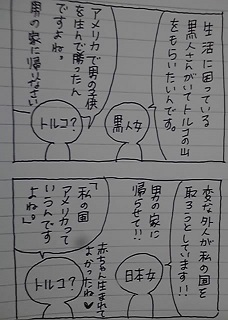 生活に困っている
黒人さんがいてトルコの山
をもらいたいんです。
黒人女
アメリカで男の子供
を住んで勝ったん
ですよね。
男の家に帰りなさい
トルコ?
変な外人が私の国を
取ろうとしています!!
男の家に
帰らせて!!
日本女
赤ちゃん生まれて
よかったね♥
「私の国
アメリカって
いつんです
よね」。
トルコ?